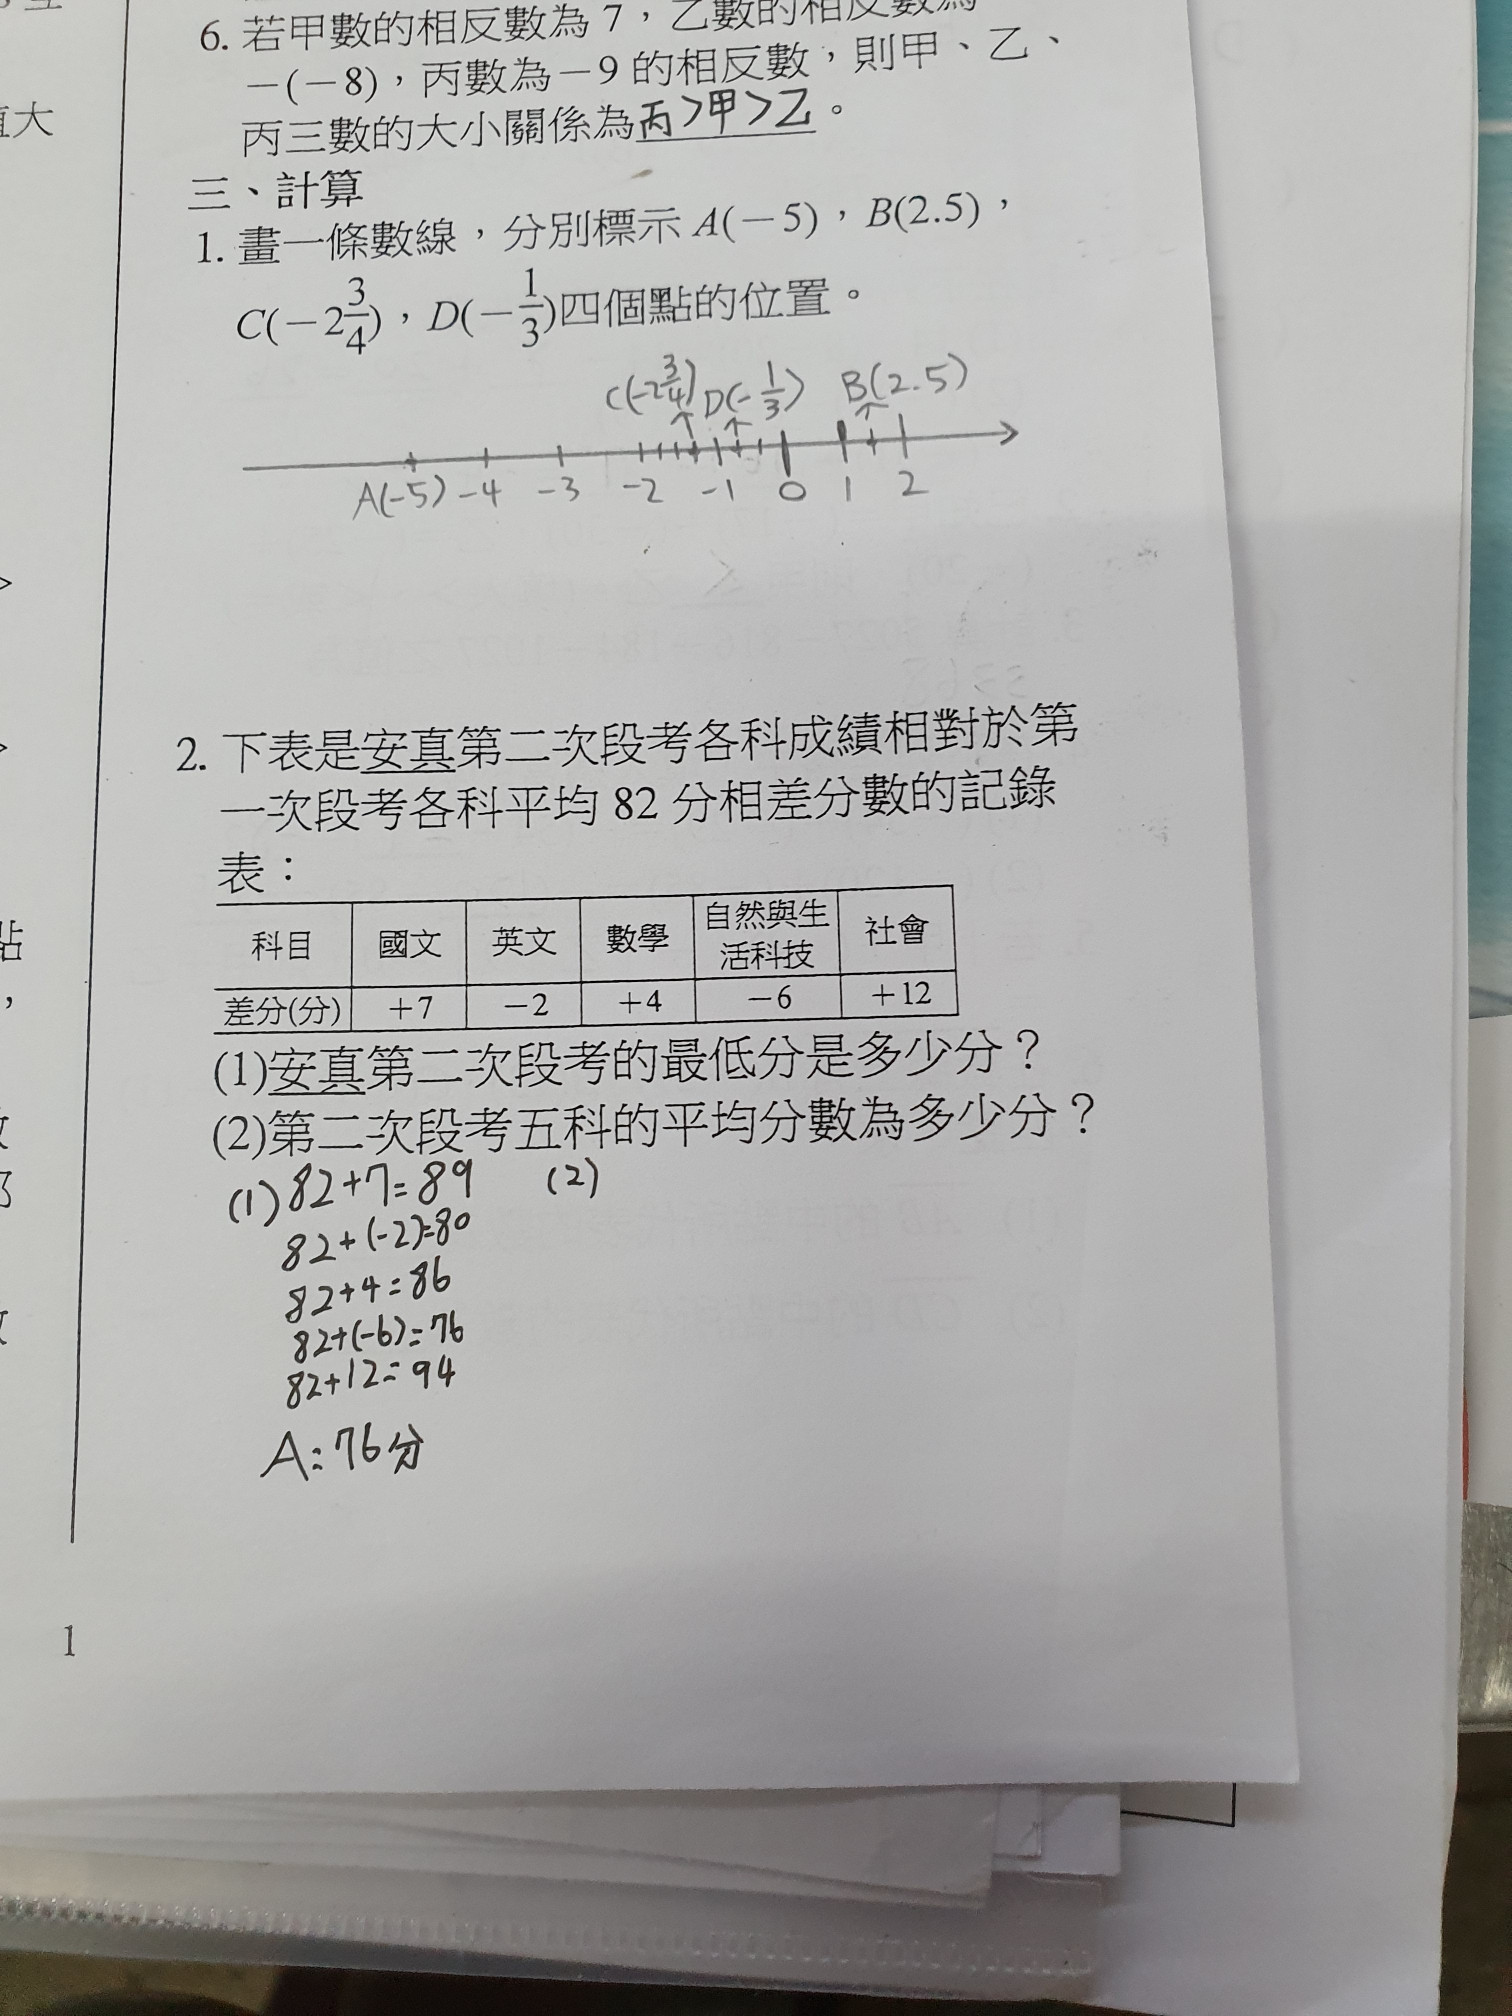 大
6. 若甲數的相反數為 7，乙數的相反數為
－(－8)，丙數為－9 的相反數，則甲、乙、
丙三數的大小關係為丙>甲>乙。
三、計算
1. 畫一條數線，分別標示 A(－5)，B(2.5)，
C(－2 3/4)，D(－1/3)四個點的位置。
C(-2 3/4) D(-1/3) B(2.5)
A(-5) -4 -3 -2 -1 0 1 2
2. 下表是安真第二次段考各科成績相對於第
一次段考各科平均 82 分相差分數的記錄
表：
科目 國文 英文 數學 自然與生活科技 社會
差分(分) +7 −2 +4 −6 +12
(1)安真第二次段考的最低分是多少分？
(2)第二次段考五科的平均分數為多少分？
(1) 82+7=89 (2)
82+(-2)=80
82+4=86
82+(-6)=76
82+12=94
A:76分
1